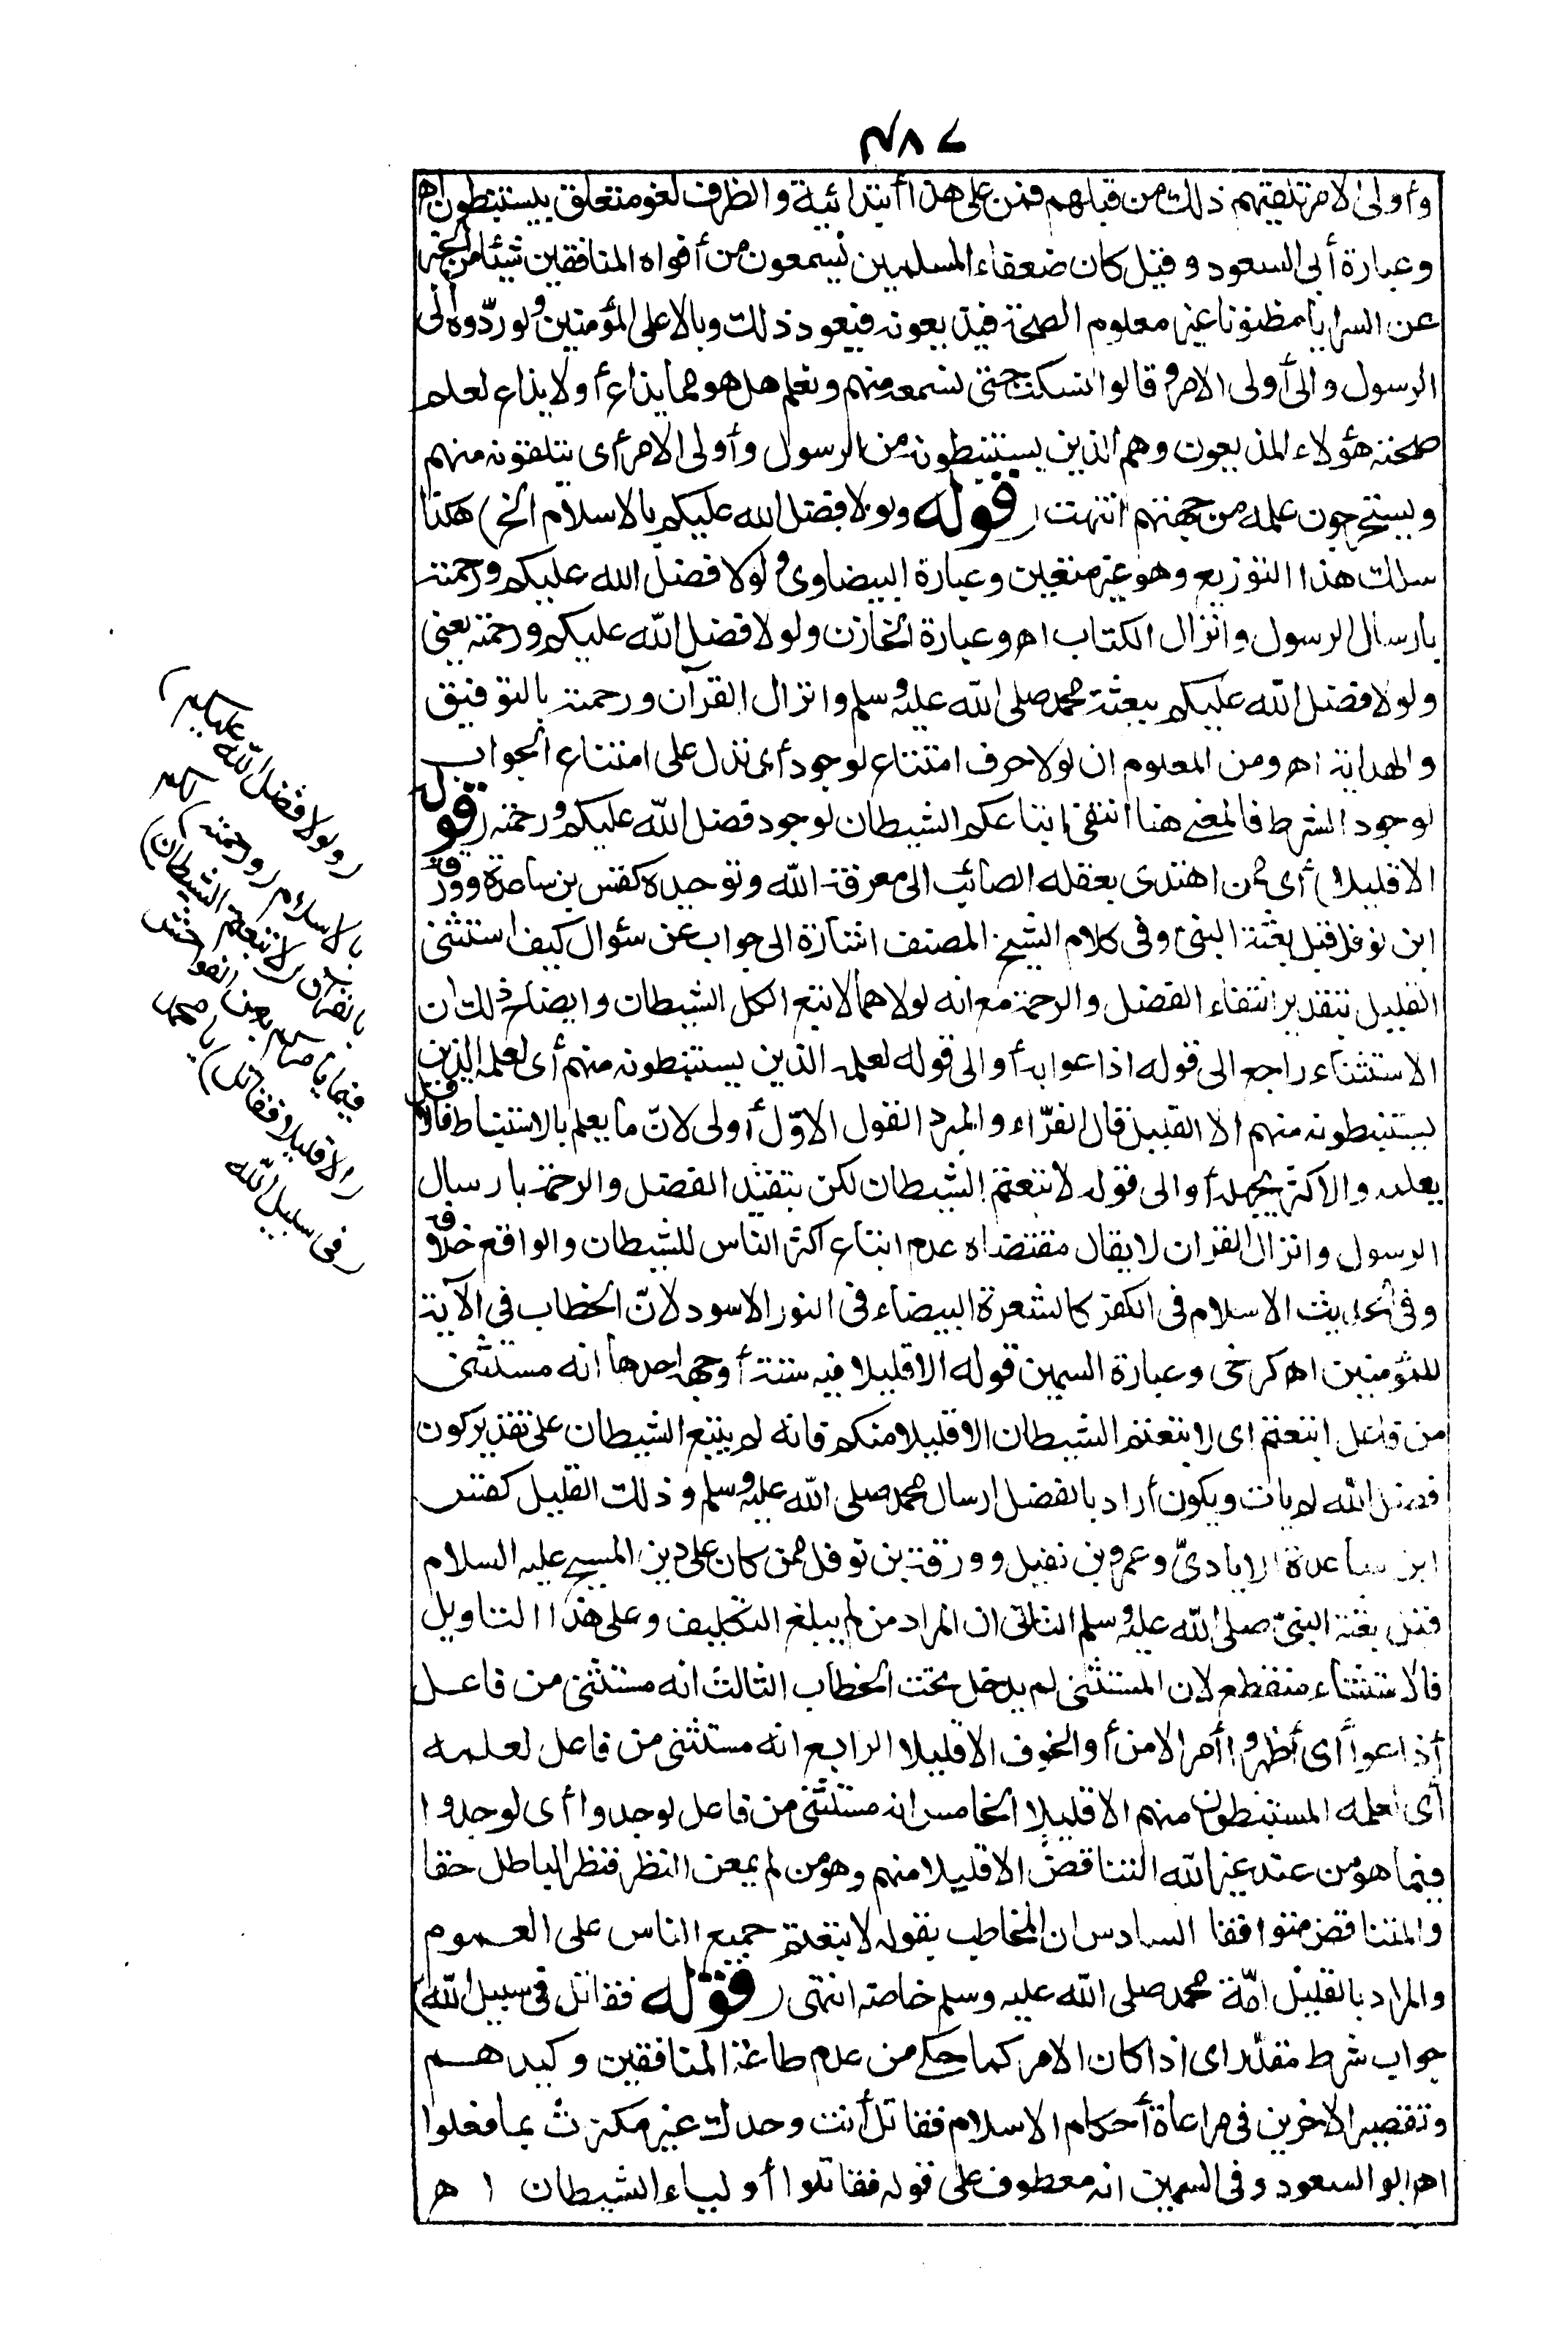 ٤٨٧
وأولى الامر تلقيتهم ذلك من قبلهم فمن على هذا ابتدائية والظرف لغو متعلق بيستنبطون اھ
وعبارة أبى السعود وقيل كان ضعفاء المسلمين يسمعون من أفواه المنافقين شيئا من الخبر
عن السرايا مظنونا غير معلوم الصحة فيذيعونه فيعود ذلك وبالا على المؤمنين ولو ردّوه الى
الرسول والى أولى الامر وقالوا نسكت حتى نسمعه منهم ونعلم هل هو مما يذاع أولا يذاع لعلم
صحته هؤلاء المذيعون وهم الذين يستنبطونه من الرسول وأولى الامر أى يتلقونه منهم
ويستخرجون علمه من جهتهم انتهت (قوله ولولا فضل الله عليكم بالاسلام الخ) هكذا
سلك هذا التوزيع وهو غير متعين وعبارة البيضاوى ولولا فضل الله عليكم ورحمته
بارسال الرسول وانزال الكتاب اھ وعبارة الخازن ولولا فضل الله عليكم ورحمته يعنى
ولولا فضل الله عليكم ببعثة محمد صلى الله عليه وسلم وانزال القرآن ورحمته بالتوفيق
والهداية اھ ومن المعلوم ان لولا حرف امتناع لوجود أى تدل على امتناع الجواب
لوجود الشرط فالمعنى هنا انتفى اتباعكم الشيطان لوجود فضل الله عليكم ورحمته (قوله
الا قليلا) أى ممن اهتدى بعقله الصائب الى معرفة الله وتوحيده كقس بن ساعدة وورقة
ابن نوفل قبل بعثة النبىّ وفى كلام الشيخ المصنف اشارة الى جواب عن سئوال كيف استثنى
القليل بتقدير انتفاء الفضل والرحمة مع انه لولاهما لاتبع الكل الشيطان وايضاح ذلك ان
الاستثناء راجع الى قوله اذاعوا به أو الى قوله لعلمه الذين يستنبطونه منهم أى لعلمه الذين
يستنبطونه منهم الا القليل قال الفرّاء والمبرد القول الاوّل أولى لانّ ما يعلم بالاستنباط فالاقل
يعلمه والاكثر يجهله أو الى قوله لاتبعتم الشيطان لكن بتقييد الفضل والرحمة بارسال
الرسول وانزال القران لا يقال مقتضاه عدم اتباع اكثر الناس للشيطان والواقع خلافه
وفى الحديث الاسلام فى الكفر كالشعرة البيضاء فى الثور الاسود لانّ الخطاب فى الآية
للمؤمنين اھ كرخى وعبارة السمين قوله الا قليلا فيه ستة أوجه احدها انه مستثنى
من فاعل اتبعتم اى لاتبعتم الشيطان الا قليلا منكم فانه لم يتبع الشيطان على تقدير كون
فضل الله لم يات ويكون أراد بالفضل ارسال محمد صلى الله عليه وسلم وذلك القليل كقس
ابن ساعدة الايادىّ وعمرو بن نفيل وورقة بن نوفل ممن كان على دين المسيح عليه السلام
قبل بعثة النبىّ صلى الله عليه وسلم الثانى ان المراد من لم يبلغ التكليف وعلى هذا التاويل
فالاستثناء منقطع لان المستثنى لم يدخل تحت الخطاب الثالث انه مستثنى من فاعل
أذاعوا أى أظهروا أمر الامن أو الخوف الا قليلا الرابع انه مستثنى من فاعل لعلمه
أى لعلمه المستنبطون منهم الا قليلا الخامس انه مستثنى من فاعل لوجدوا أى لوجدوا
فيما هو من عند غير الله التناقض الا قليلا منهم وهو من لم يمعن النظر فنظر الباطل حقا
والمتناقض متوافقا السادس ان المخاطب بقوله لاتبعتم جميع الناس على العموم
والمراد بالقليل امّة محمد صلى الله عليه وسلم خاصة انتهى (قوله فقاتل فى سبيل الله)
جواب شرط مقدّر اى اذا كان الامر كما حكى من عدم طاعة المنافقين وكيدهم
وتقصير الاخرين فى مراعاة أحكام الاسلام فقاتل أنت وحدك غير مكترث بما فعلوا
اھ ابو السعود وفى السمين انه معطوف على قوله فقاتلوا أولياء الشيطان اھ
(ولولا فضل الله عليكم)
بالاسلام (ورحمته) لكم
بالقرآن (لاتبعتم الشيطان)
فيما يأمركم به من الفواحش
(الا قليلا فقاتل) يا محمد
(فى سبيل الله